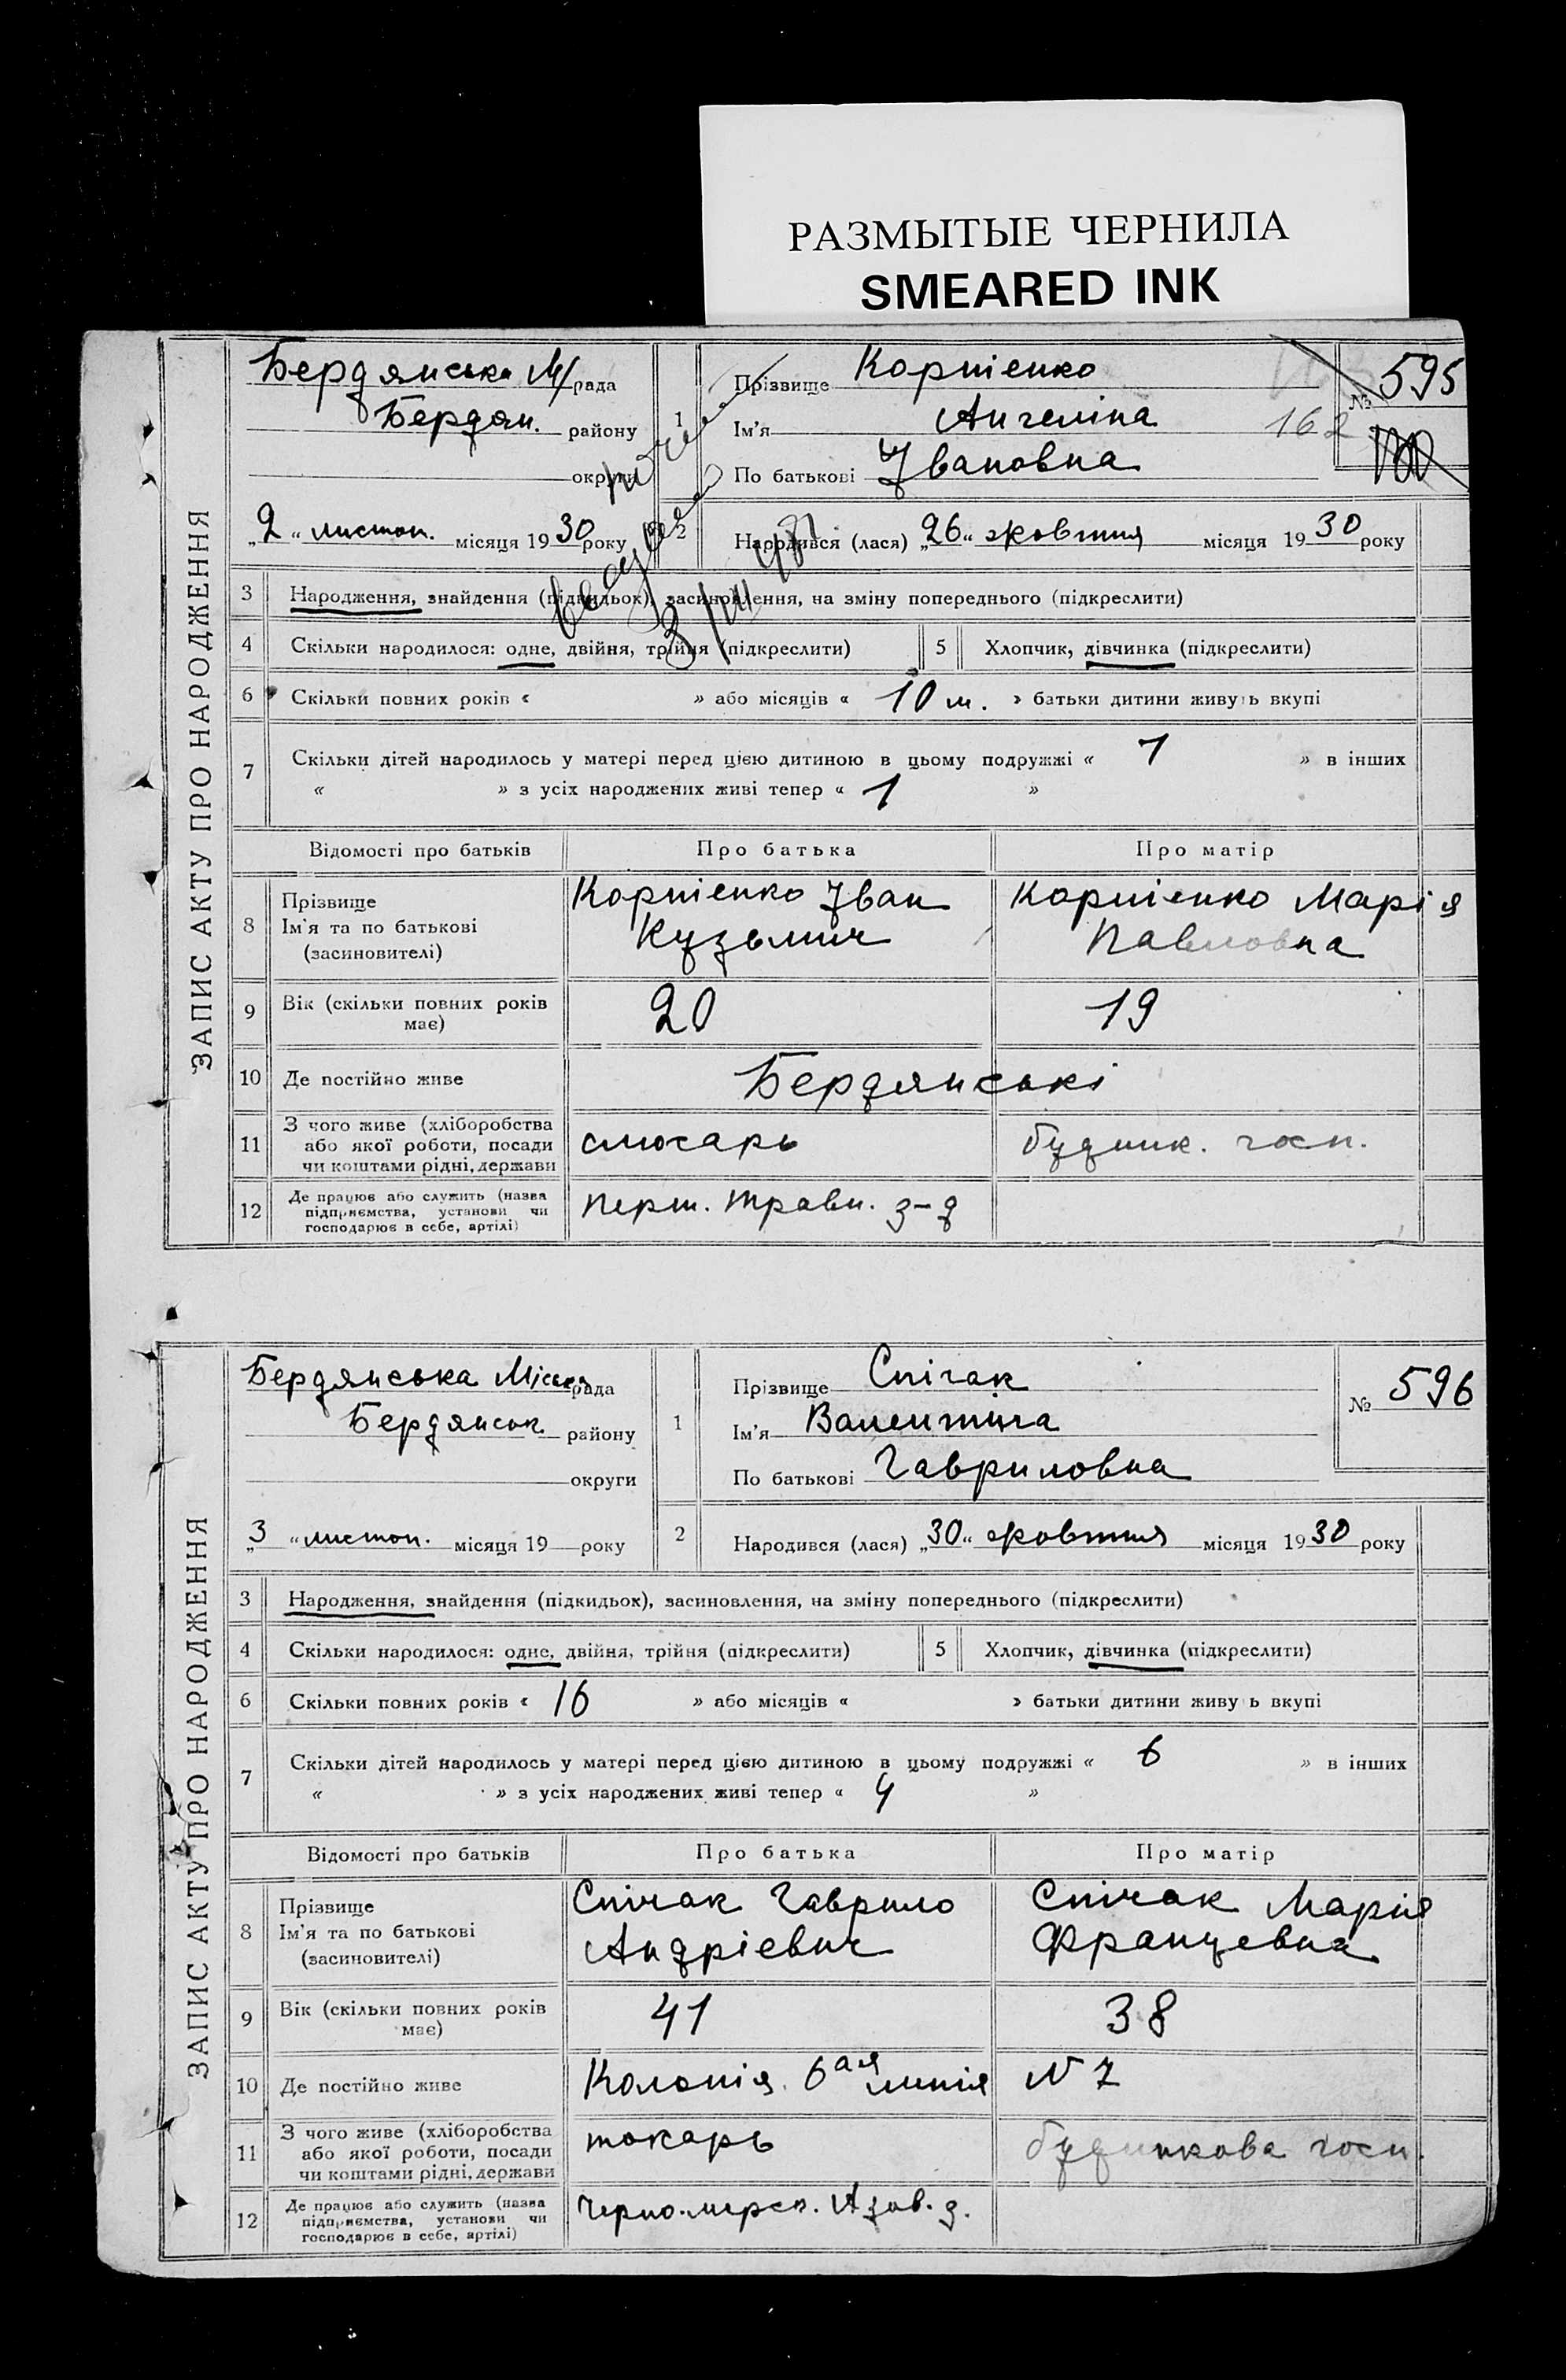 РАЗМЫТЫЕ ЧЕРНИЛА
SMEARED INK
ЗАПИС АКТУ ПРО НАРОДЖЕННЯ
Бердянська М/рада
Бердян. району
округи
„2“ листоп. місяця 1930 року
1
Прізвище Корнієнко
Ім'я Ангеліна
По батькові Івановна
№ 595
162
2
Народився (лася) „26“ жовтня місяця 1930 року
3 Народження, знайдення (підкидьох), засиновлення, на зміну попереднього (підкреслити)
4 Скільки народилося: одне, двійня, трійня (підкреслити) 5 Хлопчик, дівчинка (підкреслити)
6 Скільки повних років « » або місяців « 10 м. » батьки дитини живуть вкупі
7 Скільки дітей народилось у матері перед цією дитиною в цьому подружжі « 1 » в інших
« » з усіх народжених живі тепер « 1 »
Відомості про батьків Про батька Про матір
8 Прізвище Ім'я та по батькові (засиновителі)
Корнієнко Іван Кузьмич
Корнієнко Марія Павловна
9 Вік (скільки повних років має) 20 19
10 Де постійно живе Бердянські
11 З чого живе (хліборобства або якої роботи, посади чи коштами рідні, держави слюсарь будинк. госп.
12 Де працює або служить (назва підприємства, установи чи господарює в себе, артілі) Перш. Травн. з-д
ЗАПИС АКТУ ПРО НАРОДЖЕННЯ
Бердянська Міська рада
Бердянськ району
округи
„3“ листоп. місяця 19 року
1
Прізвище Спічак
Ім'я Валентина
По батькові Гавриловна
№ 596
2
Народився (лася) „30“ жовтня місяця 1930 року
3 Народження, знайдення (підкидьох), засиновлення, на зміну попереднього (підкреслити)
4 Скільки народилося: одне, двійня, трійня (підкреслити) 5 Хлопчик, дівчинка (підкреслити)
6 Скільки повних років « 16 » або місяців « » батьки дитини живу ь вкупі
7 Скільки дітей народилось у матері перед цією дитиною в цьому подружжі « 6 » в інших
« » з усіх народжених живі тепер « 4 »
Відомості про батьків Про батька Про матір
8 Прізвище Ім'я та по батькові (засиновителі)
Спічак Гаврило Андрієвич
Спічак Марія Францевна
9 Вік (скільки повних років має) 41 38
10 Де постійно живе Колонія 6ая линія N 7
11 З чого живе (хліборобства або якої роботи, посади чи коштами рідні, держави токарь будинкова госп.
12 Де працює або служить (назва підприємства, установи чи господарює в себе, артілі)